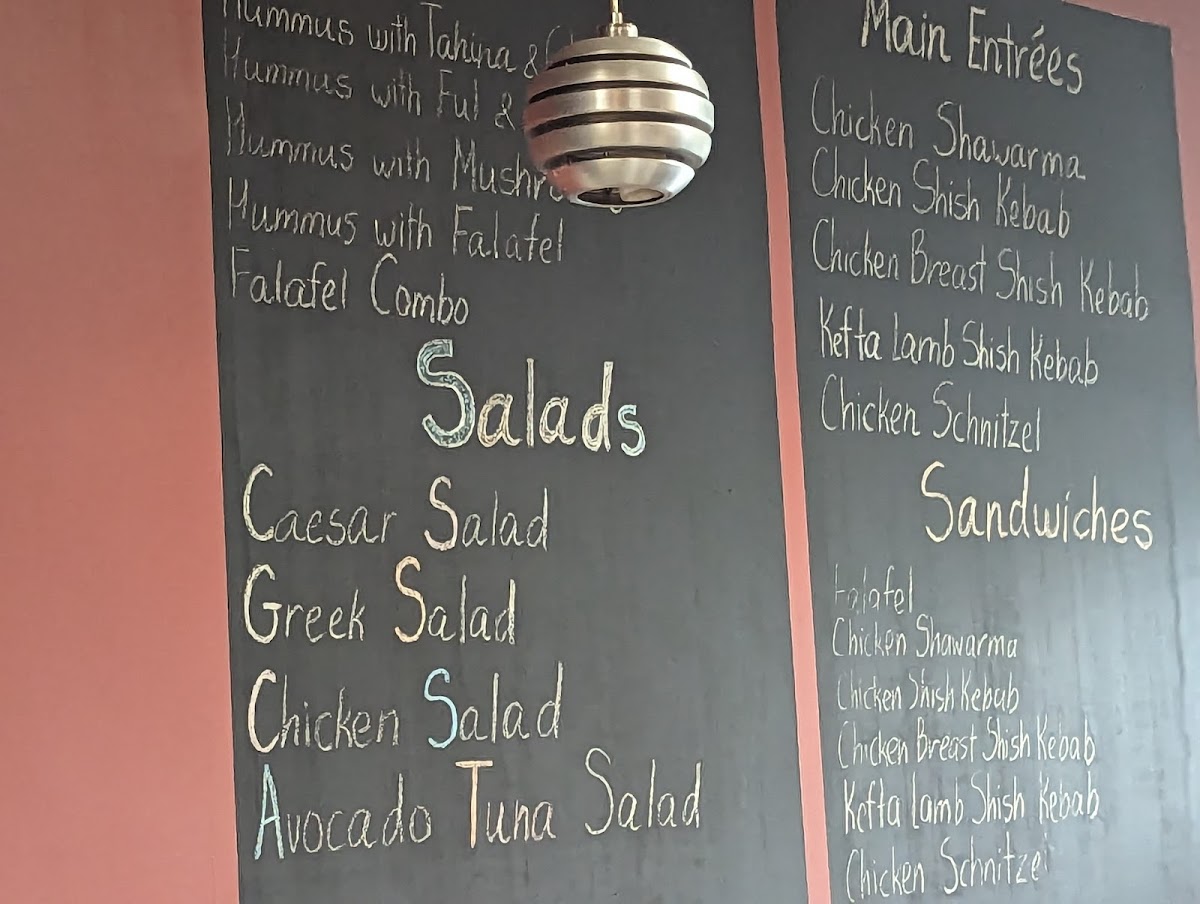 Hummus with Tahina &
Hummus with Ful &
Hummus with
Hummus with Falafel
Falafel Combo
Salads
Caesar Salad
Greek Salad
Chicken Salad
Avocado Tuna Salad
Main Entrées
Chicken Shawarma
Chicken Shish Kebab
Chicken Breast Shish Kebab
Kefta Lamb Shish Kebab
Chicken Schnitzel
Sandwiches
Falafel
Chicken Shawarma
Chicken Shish Kebab
Chicken Breast Shish Kebab
Kefta Lamb Shish Kebab
Chicken Schnitzel